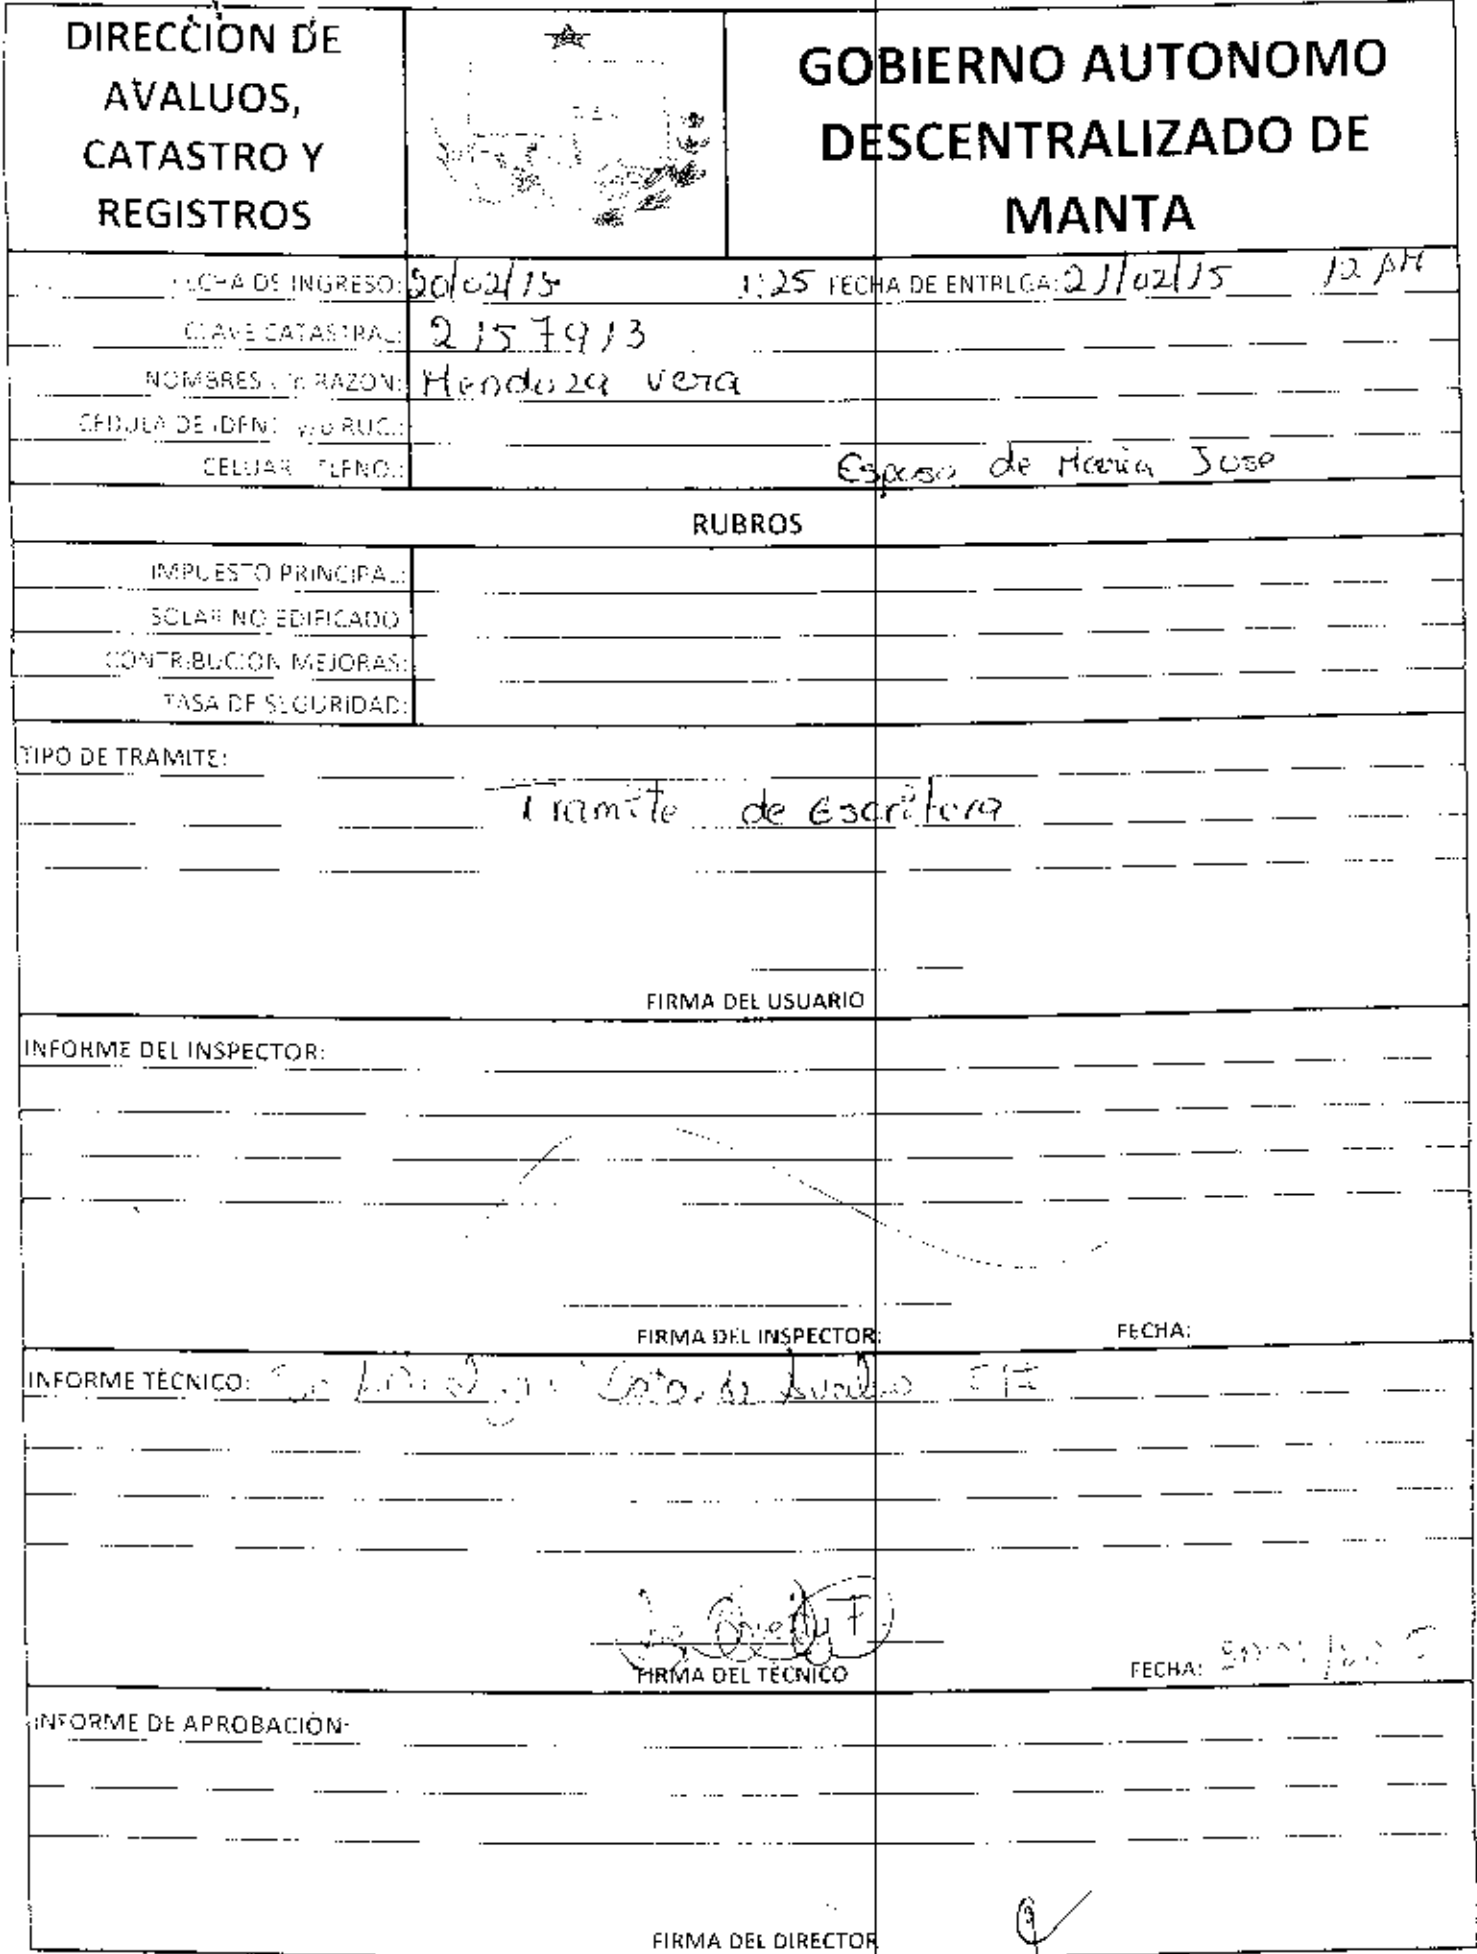 DIRECCION DE
AVALUOS,
CATASTRO Y
REGISTROS
GOBIERNO AUTONOMO
DESCENTRALIZADO DE
MANTA
FECHA DE INGRESO: 20/02/15 1:25 FECHA DE ENTREGA: 21/02/15 12 AM
CLAVE CATASTRAL: 2157913
NOMBRES Y/O RAZON: Mendoza vera
CEDULA DE IDENT. Y/O RUC.:
CELUAR - TLFNO.:
Esposo de Maria Jose
RUBROS
IMPUESTO PRINCIPAL:
SOLAR NO EDIFICADO
CONTRIBUCION MEJORAS:
TASA DE SEGURIDAD:
TIPO DE TRAMITE:
Tramite de Escritura
FIRMA DEL USUARIO
INFORME DEL INSPECTOR:
FIRMA DEL INSPECTOR:
FECHA:
INFORME TÉCNICO: de Avaluo
FIRMA DEL TÉCNICO
FECHA:
INFORME DE APROBACIÓN:
FIRMA DEL DIRECTOR